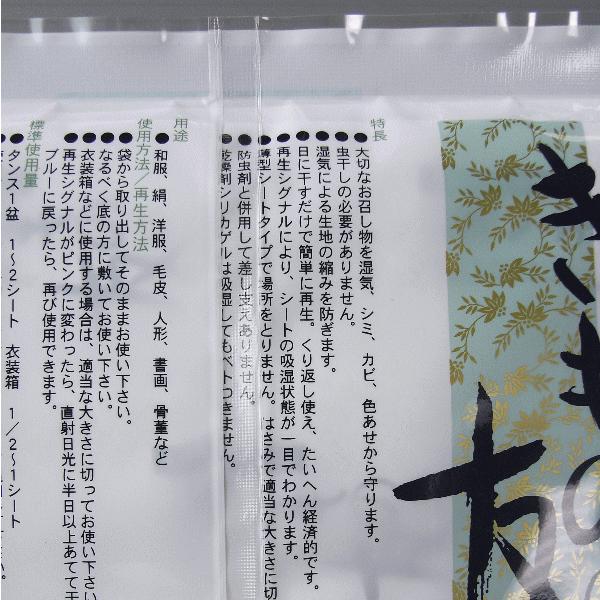 きもの
特長
●大切なお召し物を湿気、シミ、カビ、色あせから守ります。
●虫干しの必要がありません。
●湿気による生地の縮みを防ぎます。
●日に干すだけで簡単に再生。くり返し使え、たいへん経済的です。
●再生シグナルにより、シートの吸湿状態が一目でわかります。
●薄型シートタイプで場所をとりません。はさみで適当な大きさに切
●防虫剤と併用して差し支えありません。
●乾燥剤シリカゲルは吸湿してもベトつきません。
用途
●和服、絹、洋服、毛皮、人形、書画、骨董など
使用方法／再生方法
●袋から取り出してそのままお使い下さい。
●なるべく底の方に敷いてお使い下さい。
●衣装箱などに使用する場合は、適当な大きさに切ってお使い下さい
●再生シグナルがピンクに変わったら、直射日光に半日以上あてて干
ブルーに戻ったら、再び使用できます。
標準使用量
●タンス1盆 1〜2シート 衣装箱 1／2〜1シート